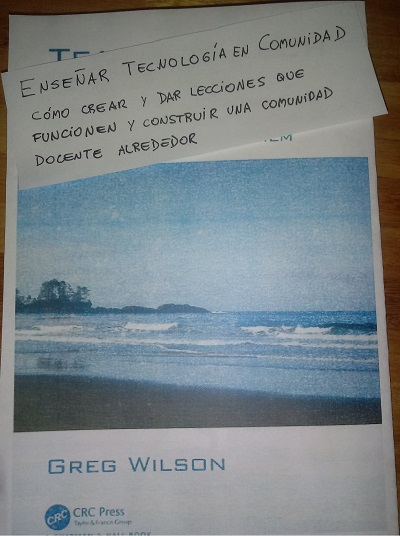 TEA
ENSEÑAR TECNOLOGÍA EN COMUNIDAD
CÓMO CREAR Y DAR LECCIONES QUE
FUNCIONEN Y CONSTRUIR UNA COMUNIDAD
DOCENTE ALREDEDOR
GREG WILSON
CRC
CRC Press
Taylor & Francis Group